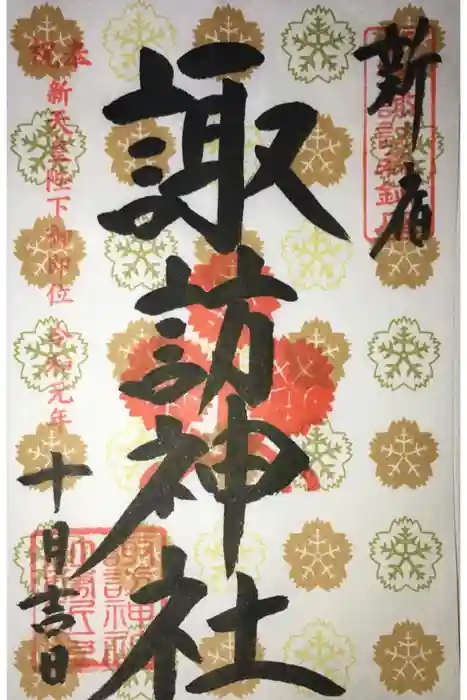 新宿
諏訪神社
奉祝 新天皇陛下御即位 令和元年
十月吉日